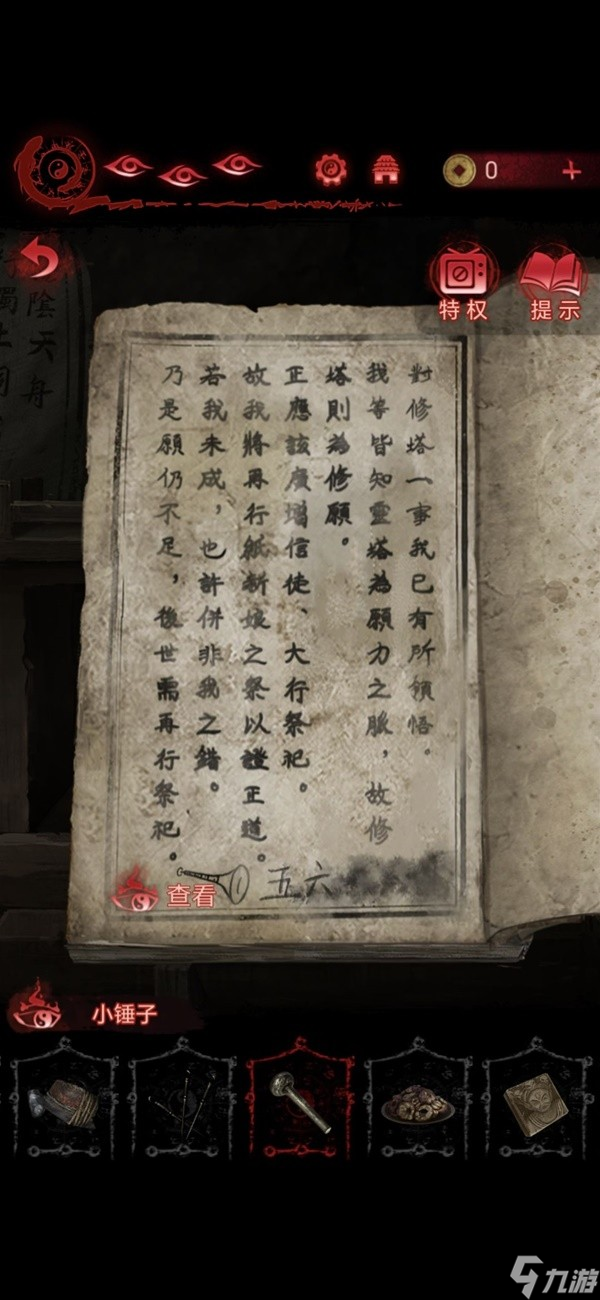 0
特权
提示
陰天舟
對修塔一事我已有所領悟。
我等皆知靈塔為願力之脈，故修
塔則為修願。
正應該廣增信徒、大行祭祀。
故我將再行紙新娘之祭以證正道。
若我未成，也許併非我之錯。
乃是願仍不足，後世需再行祭祀。
① 五六
查看
小锤子
九游